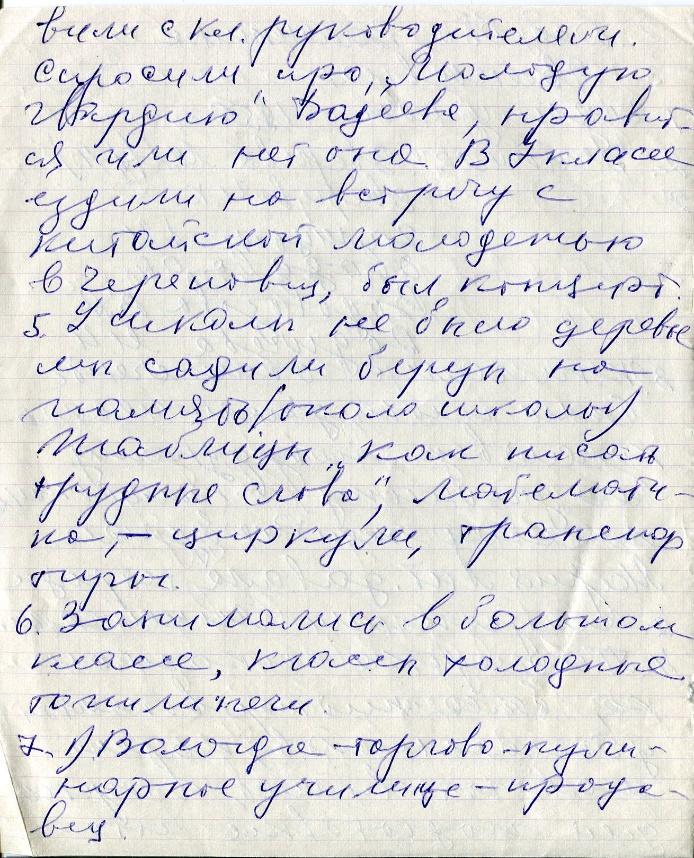 вили с кл. руководителем.
Спросили про „Молодую
гвардию" Фадеева, нравит-
ся или нет она. В 7 классе
ездили на встречу с
китайской молодежью
в Череповец, был концерт.
5. У школы не было деревьев
мы садили березы на
память (около школы)
Таблицы „как писать
трудные слова", математи-
ка, – циркули, транспор
тиры.
6. Занимались в большом
классе, классы холодные
топили печи.
7. 1) Вологда – торгово-кули-
нарное училище – прода-
вец.